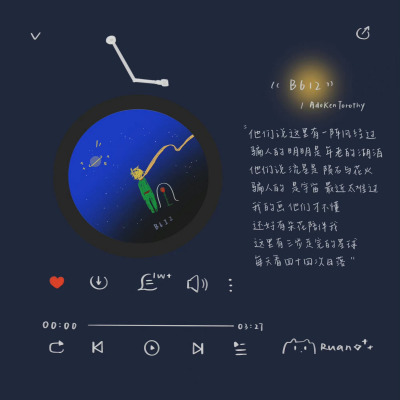 “B612”
/ AdoKenTorothy
“他们说这里有一阵风经过
骗人的 明明是年老的湖泊
他们说 流星是 陨石与花火
骗人的 是宇宙 最近太难过
我的画 他们才不懂
还好有朵花陪伴我
这里有三步走完的星球
每天看四十四次日落”
B612
1W+
00:00
03:27
Ruan